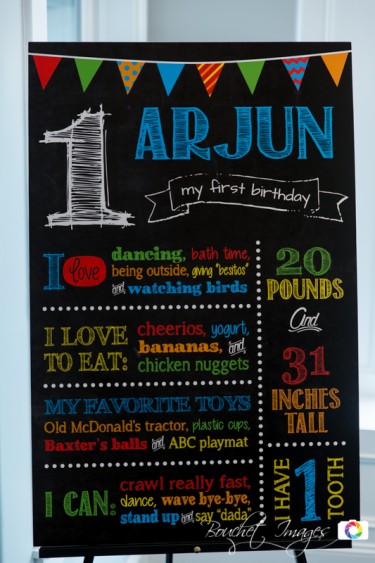 1 ARJUN
my first birthday
I love dancing, bath time,
being outside, giving "besitos"
and watching birds
I LOVE TO EAT: cheerios, yogurt,
bananas, and
chicken nuggets
MY FAVORITE TOYS
Old McDonald's tractor, plastic cups,
Baxter's balls and ABC playmat
I CAN: crawl really fast,
dance, wave bye-bye,
stand up and say "dada"
20
POUNDS
And
31
INCHES
TALL
I HAVE 1 TOOTH
Bouchet Images